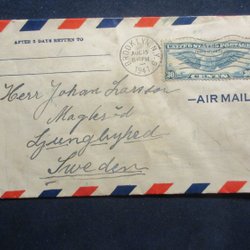 AFTER 5 DAYS RETURN TO
BROOKLYN, N.Y.
AUG 15
1941
UNITED STATES POSTAGE
30 CENTS
AIR MAIL
Herr Johan Larsson
Ljungbyhed
Sweden